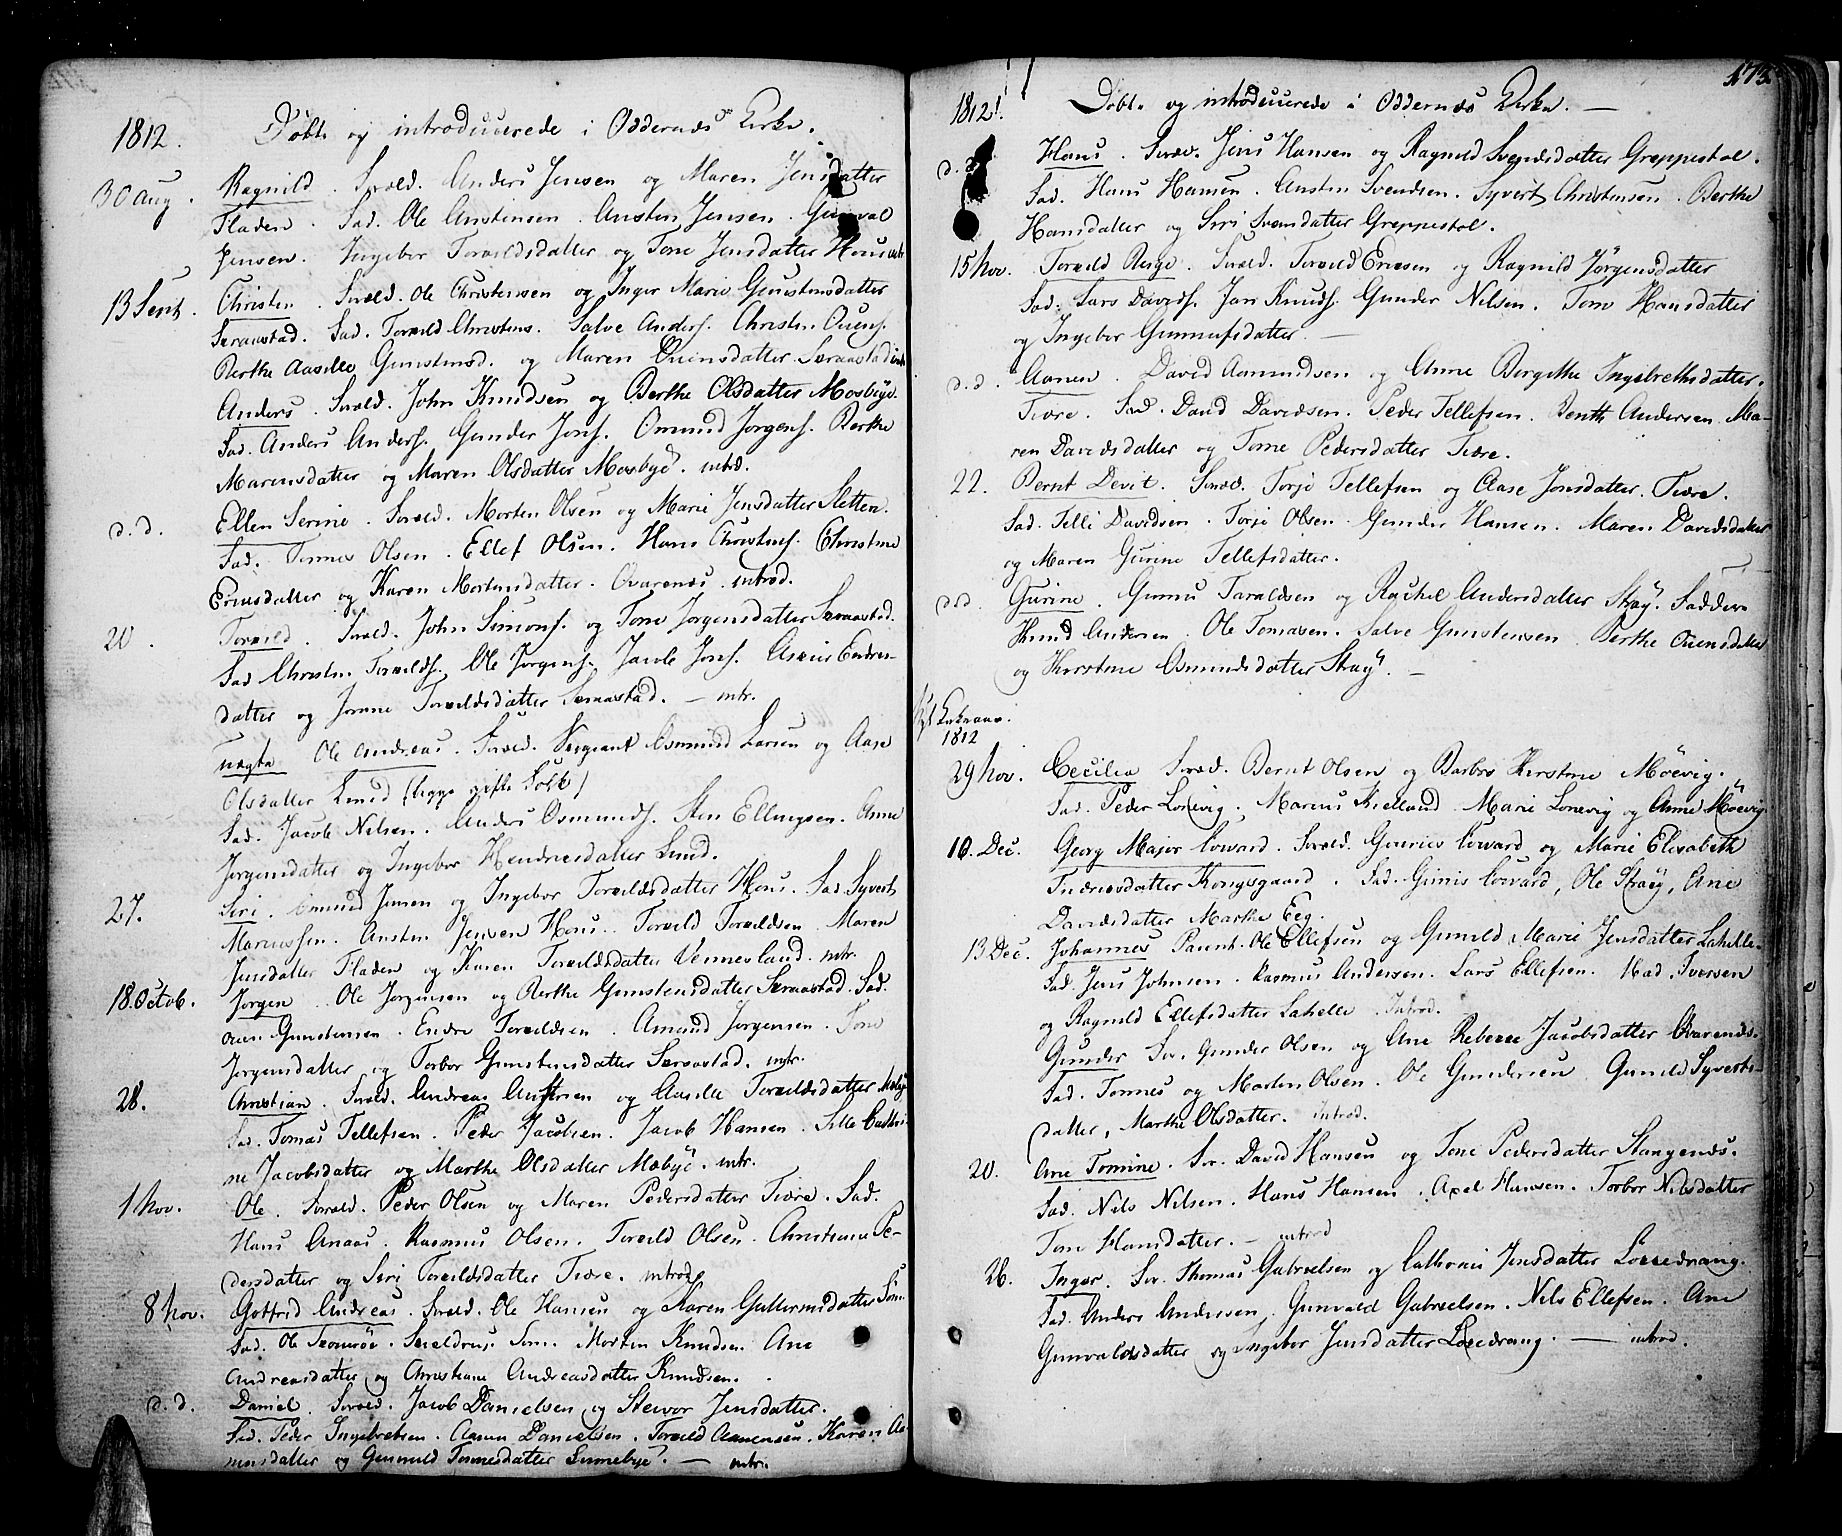 1812. Döbte og introducerede i Oddernæs Kirke.
30 Aug. Ragnild. Foræld. Anders Jensen og Maren Jensdatter
Fladen. Fad. Ole Austensen. Austen Jensen. Gunval
Jensen. Ingebor Torvildsdatter og Tone Jensdatter Hons
13 Sept. Christen. Foræld. Ole Christensen og Inger Marie Gunstensdatter
Seraastad. Fad. Torvild Christens. Salve Anders. Christen Ouens.
Berthe Aasille Gunstensd. og Maren Ouensdatter Seraastad
Anders. Foræld. John Knudsen og Berthe Olsdatter Mosbye.
Fad. Anders Anders. Gunder Jons. Omund Jörgens. Berthe
Marensdatter og Maren Olsdatter Mosbye. introd.
d. d. Ellen Serine. Foræld. Morten Olsen og Marie Jensdatter Sletten.
Fad. Tonnes Olsen. Ellef Olsen. Hans Christens. Christine
Ericsdatter og Karen Mortensdatter Qvarenæs. introd.
20. Torvild. Foræld. John Simons. og Tone Jörgensdatter Seraastad.
Fad. Christen Torvilds. Ole Jörgens. Jacob Jons. Endres-
datter og Jorine Torvildsdatter Seraastad. — intr.
uægte Ole Andreas. Foræld. Sergeant Osmund Larsen og Aase
Olsdatter Lund (begge gifte Folk)
Fad. Jacob Nilsen. Anders Osmunds. Sten Ellingsen. Anne
Jörgensdatter og Ingebor Hendricsdatter Lund.
27. Siri. Omund Jensen og Ingebor Torvildsdatter Hons. Fad. Syvert
Marcussen. Austen Jensen Hons. Torvild Torvildsen. Maren
Jensdatter Fladen og Karen Torvildsdatter Vennesland. intr.
18. Octob. Jörgen. Ole Jörgensen og Berthe Gunstensdatter Seraastad. Fad.
Ouen Gunstensen. Endre Torvildsen. Amund Jörgensen. Tone
Jörgensdatter og Torbor Gunstensdatter Seraastad. intr.
28. Christian. Foræld. Andreas Austensen og Aasille Torvildsdatter Mæbye
Fad. Tomas Tellefsen. Peder Jacobsen. Jacob Hansen. Sille Cathri-
ne Jacobsdatter og Marthe Olsdatter Mæbye. intr.
1 Nov. Ole. Foræld. Peder Olsen og Maren Pedersdatter Tvere. Fad.
Hans Anaas. Rasmus Olsen. Torvild Olsen. Christiane Pe-
dersdatter og Siri Torvildsdatter Tvere. introd.
8 Nov. Gottfrid Andreas. Foræld. Ole Hansen og Karen Guttormsdatter
Fad. Ole Morten Knudsen. Ane
Andreasdatter og Christiane Andreasdatter Knudsen.
d. d. Daniel. Foræld. Jacob Danielsen og Stevor Jensdatter.
Fad. Peder Ingebretsen. Aanen Danielsen. Torvild Aanensen. Karen Aa-
nensdatter og Gunnild Tonnesdatter. — intr.
173.
1812. Döbte og introducerede i Oddernæs Kirke. —
d. d. Hans. Foræld. Jens Hansen og Ragnild Svendsdatter Greppestol.
Fad. Hans Hansen. Austen Svendsen. Syvert Christensen. Berthe
Hansdatter og Siri Svensdatter Greppestol.
15 Nov. Torvild Berge. Foræld. Torvild Ericsen og Ragnild Jörgensdatter
Fad. Lars Davids. Jan Knuds. Gunder Nilsen. Tone Hansdatter
og Ingebor Gunnufsdatter. —
d. d. Aanen. David Aamundsen og Anne Birgithe Ingebrethsdatter.
Tvere. Fad. David Davidsen. Peder Tellefsen. Benth Andersen. Ma-
ren Davidsdatter og Tone Pedersdatter Tvere.
22. Bernt Devit. Foræld. Torje Tellefsen og Aase Jonsdatter. Tvere.
Fad. Telle Davidsen. Torje Olsen. Gunder Hansen. Maren Davidsdatter
og Maren Gurine Tellefsdatter.
d. d. Gurine. Gunnu Taraldsen og Rachel Andersdatter Straÿ. Faddere
Knud Andersen. Ole Tomasen. Salve Gunstensen. Berthe Ouensdatter
og Kirstine Osmundsdatter Straÿ. —
Kirkeaar.
1812
29 Nov. Cecilia. Foræld. Bernt Olsen og Barbro Kirstine Möevig.
Fad. Peder Lonevig. Marcus Kielland. Marie Lonevig og Anne Möevig
10. Dec. Georg Major Coward. Foræld. Coward og Marie Elisabeth
Kongsgaard. Fad. Coward, Ole Straÿ, Ane
Davidsdatter Marthe Eeg.
13 Dec. Johannes Parent. Ole Ellefsen og Gunild Marie Jensdatter Lahelle.
Fad. Jens Johnsen. Rasmus Andersen. Lars Ellefsen. Iversen
og Ragnild Ellefsdatter Lahelle. Introd.
Gunder For. Gunder Olsen og Ane Rebecce Jacobsdatter Qvarenæs.
Fad. Tonnes og Morten Olsen. Ole Gundersen. Gunild Syverts-
datter, Marthe Olsdatter. introd.
20. Ane Tomine. For. David Hansen og Tone Pedersdatter Stangenæs.
Fad. Nils Nilsen. Hans Hansen. Axel Hansen. Torbor Nilsdatter
Tone Hansdatter. — introd
26. Inger. For. Thomas Gabrielsen og Cathrine Jensdatter
Fad. Anders Andersen. Gunvald Gabrielsen. Nils Ellefsen. Ane
Gunvaldsdatter og Ingebor Jensdatter — introd.